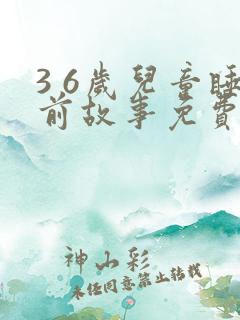 3 6歲兒童睡
前故事免費
神山彩
未經同意禁止轉載